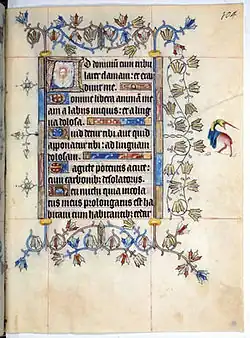 104
Ad dominum cum tribu
larer clamaui: et exau
diuit me.
Domine libera animā me
am a labiis iniquis: et a lingu
a dolosa.
Quid detur tibi: aut quid
apponatur tibi: ad linguam
dolosam.
Sagitte potentis acute:
cum carbonib; desolatoriis.
Heu michi quia incola
tus meus prolongatus est ha
bitaui cum habitantib; cedar